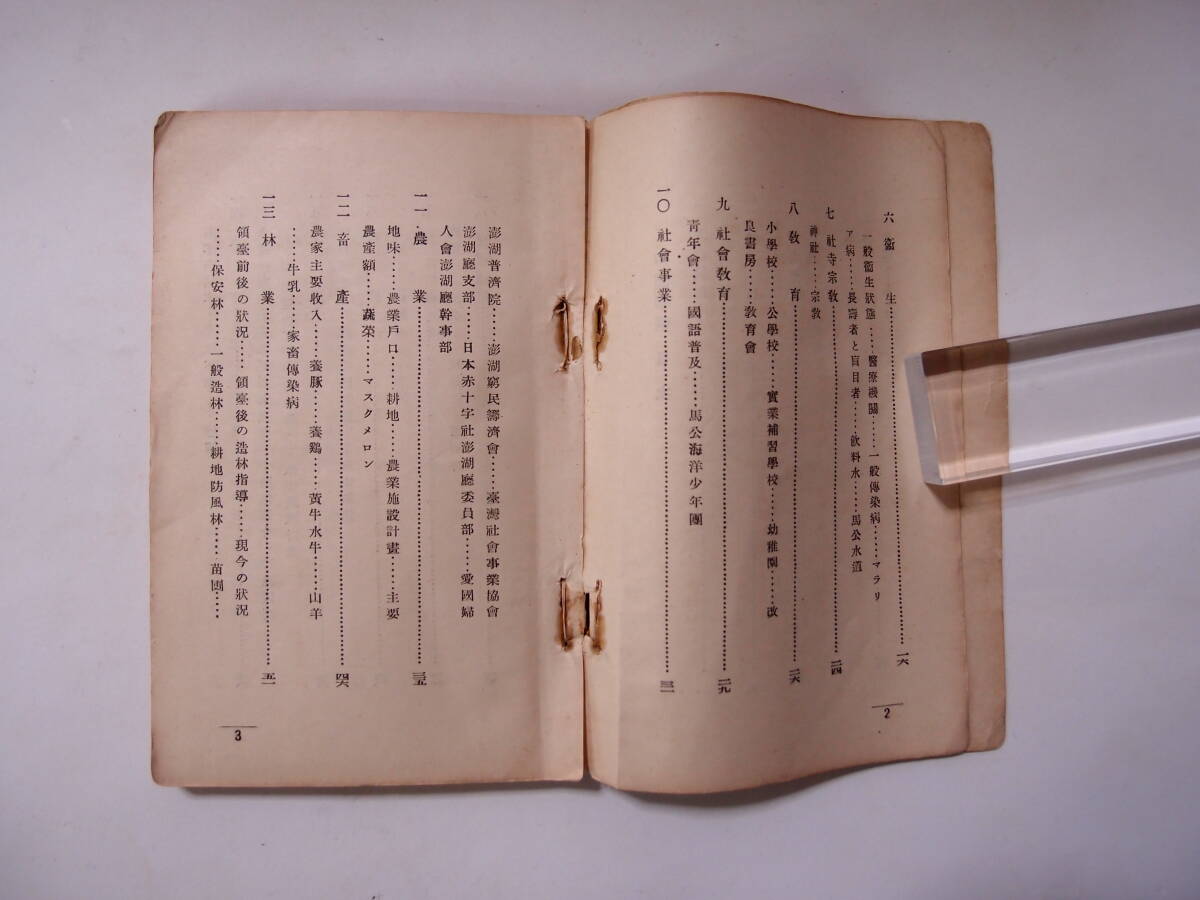 六 衞 生……一六
一般衞生狀態……醫療機關……一般傳染病……マラリ
ア病……長壽者と盲目者……飲料水……馬公水道
七 社寺宗敎……二四
神社……宗敎
八 敎 育……二六
小學校……公學校……實業補習學校……幼稚園……改
良書房……敎育會
九 社會敎育……二九
靑年會……國語普及……馬公海洋少年團
一〇 社會事業……三一
2
澎湖普濟院……澎湖窮民籌濟會……臺灣社會事業協會
澎湖廳支部……日本赤十字社澎湖廳委員部……愛國婦
人會澎湖廳幹事部
一一 農 業……三五
地味……農業戶口……耕地……農業施設計畫……主要
農產額……蔬菜……マスクメロン
一二 畜 產……四六
農家主要收入……養豚……養鷄……黃牛水牛……山羊
……牛乳……家畜傳染病
一三 林 業……五一
領臺前後の狀況……領臺後の造林指導……現今の狀況
……保安林……一般造林……耕地防風林……苗圃……
3